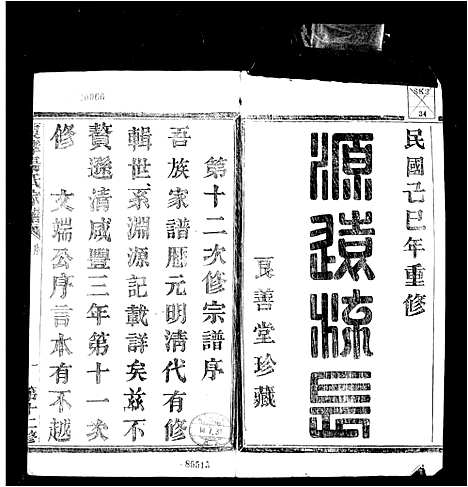 民國己巳年重修
源遠流長
良善堂珍藏
第十二次修宗譜序
吾族家譜歷元明清代有修
輯世系淵源記載詳矣茲不
贅遜清咸豐三年第十一次
修 文端公序言本有不越
第十二修
SKS
34
85515